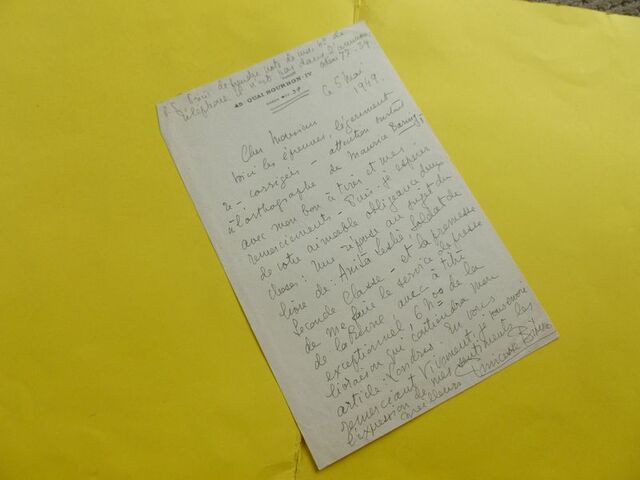 P.S. Prière de prendre note de mon No de
téléphone qui n'est pas dans l'annuaire
45 QUAI BOURBON. IV
le 5 Mai
1949.
Cher Monsieur
Voici les épreuves, légèrement
re-corrigées - attention surtout
à l'orthographe de Maurice
avec mon bon à tirer et mes
remerciements - Puis-je espérer
de votre aimable obligeance deux
choses: une réponse au sujet du
livre de: Anita Leslie Soldat de
Seconde Classe - et la promesse
de me faire le service de presse
de la Revue avec à titre
exceptionnel, 6 Nos de la
livraison qui contiendra mon
article: Londres. En vous
remerciant vivement, je vous envoie
l'expression de mes sentiments les
meilleurs Princesse Bibesco